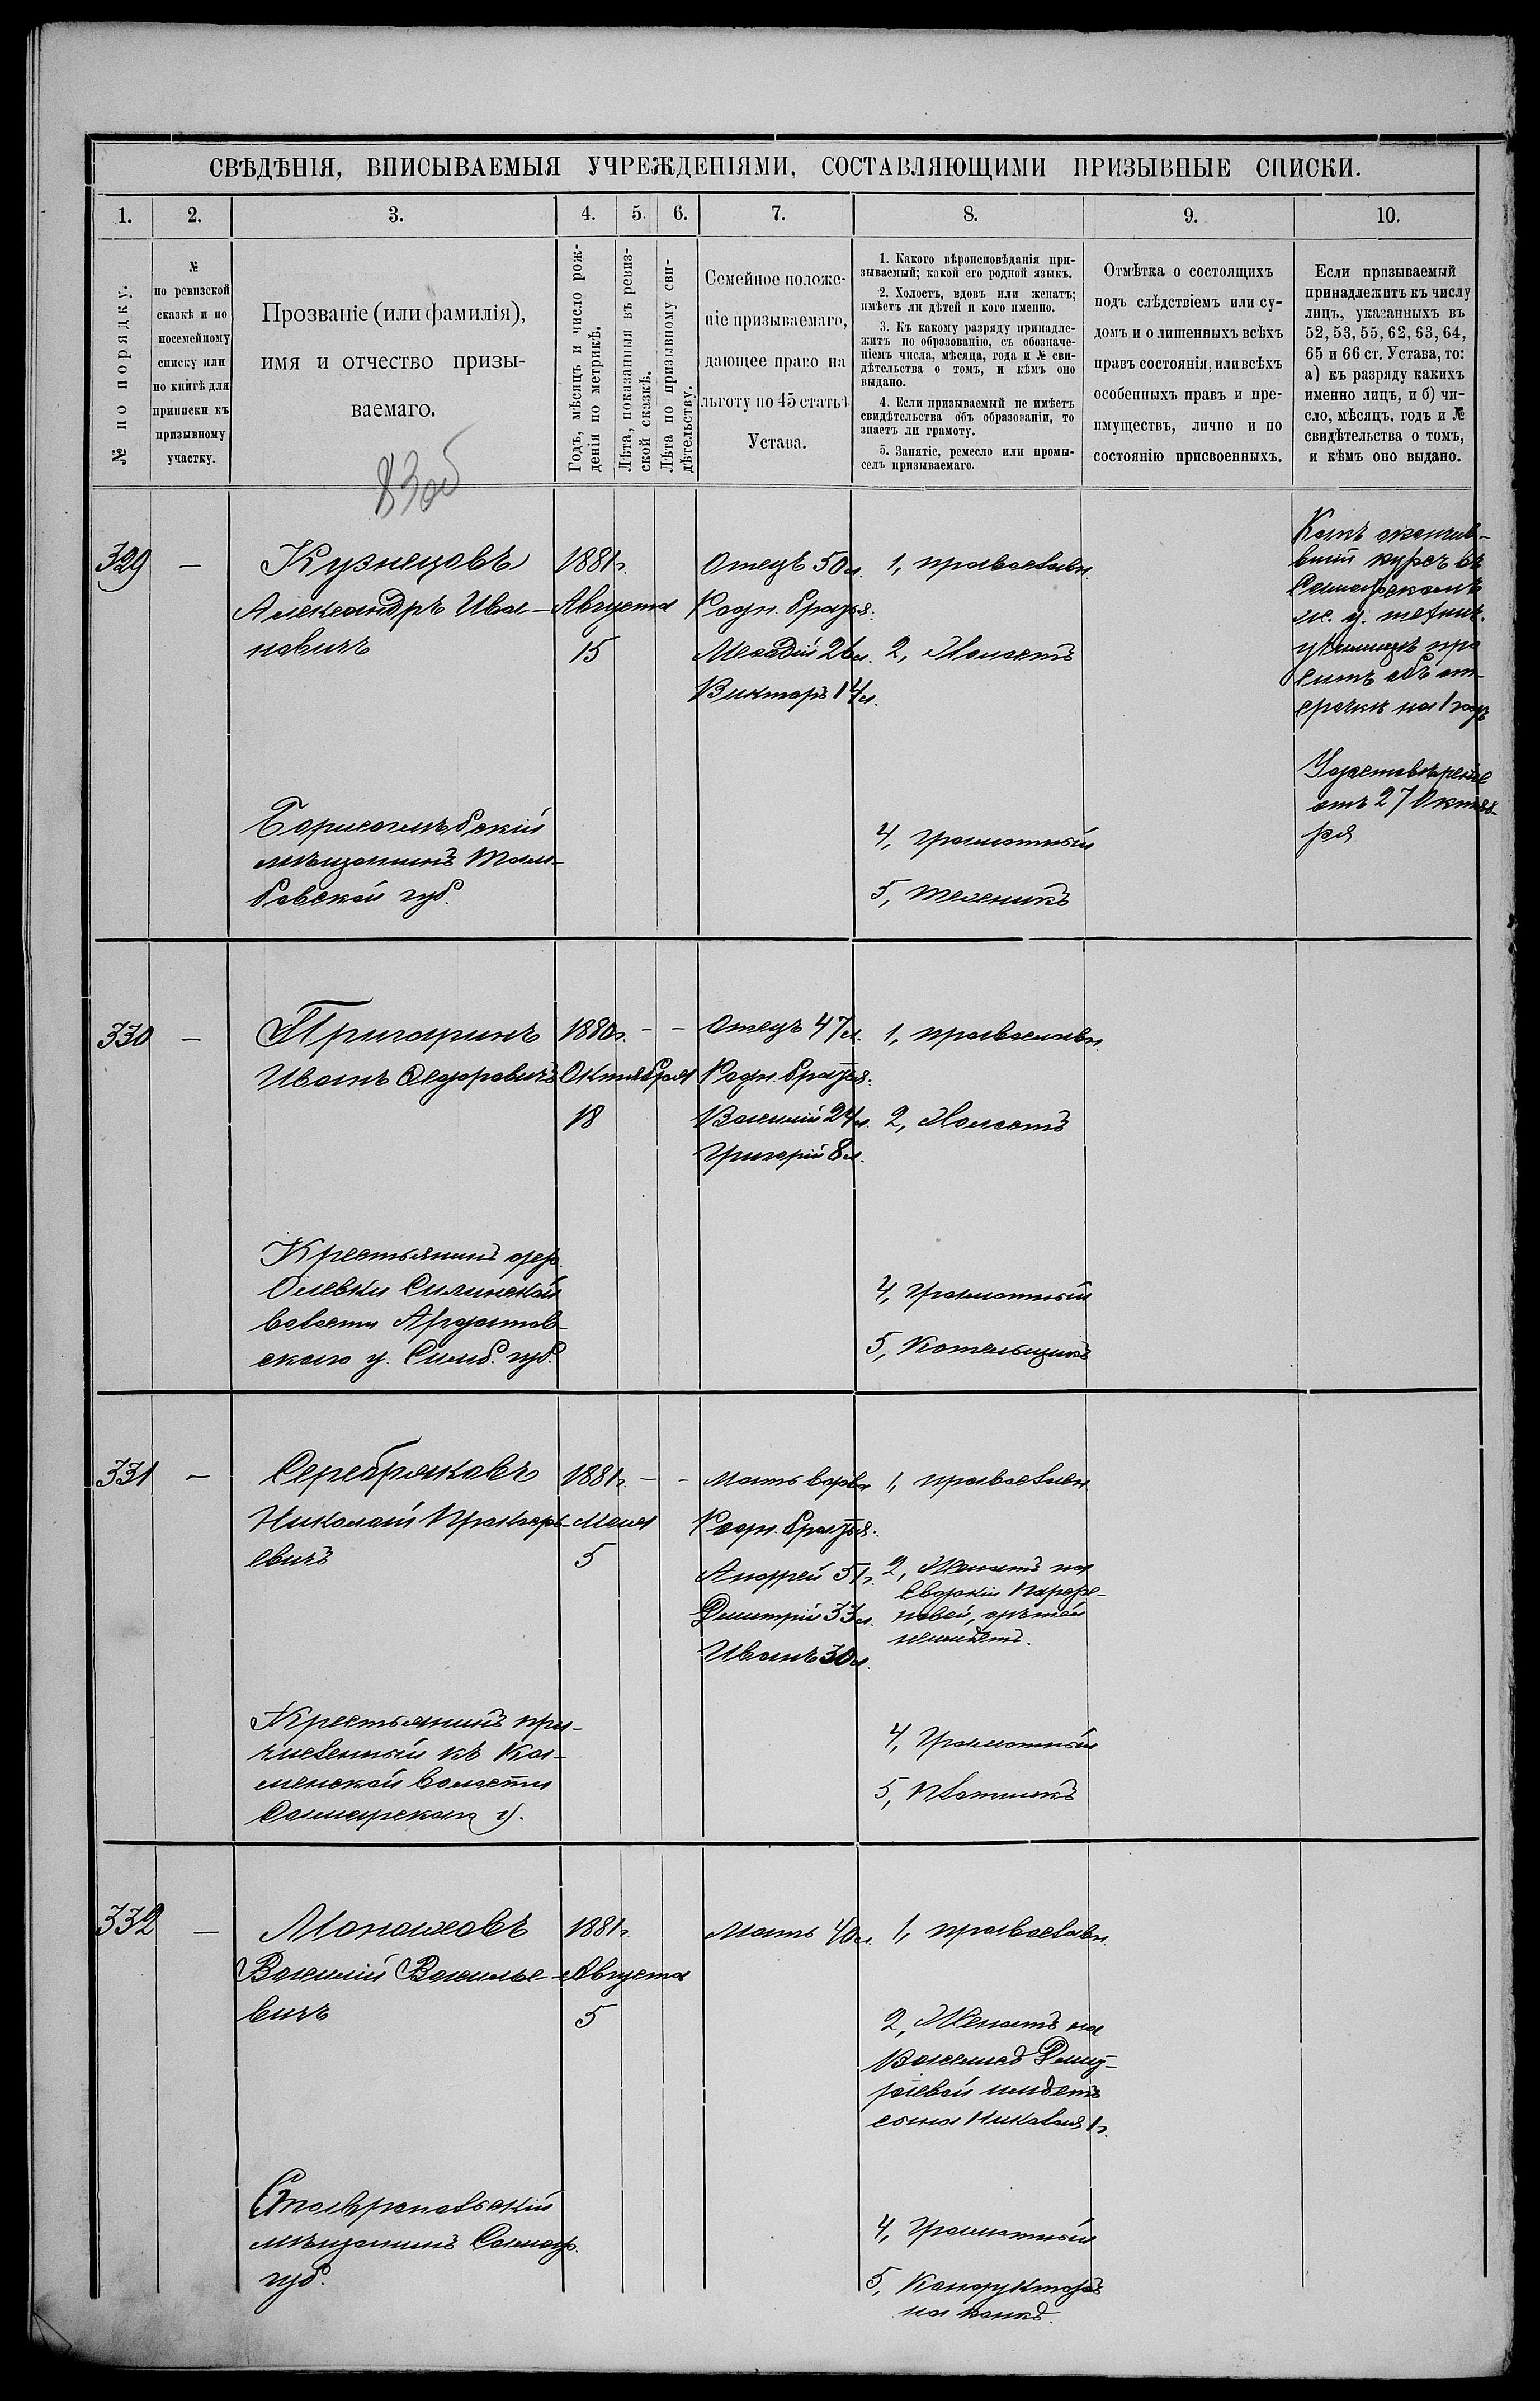 СВѢДѢНІЯ, ВПИСЫВАЕМЫЯ УЧРЕЖДЕНІЯМИ, СОСТАВЛЯЮЩИМИ ПРИЗЫВНЫЕ СПИСКИ.
1. 2. 3. 4. 5. 6. 7. 8. 9. 10.
№ по порядку.
№
по ревизской
сказкѣ и по
посемейному
списку или
по книгѣ для
приписки къ
призывному
участку.
Прозваніе (или фамилія),
имя и отчество призы-
ваемаго.
Годъ, мѣсяцъ и число рож-
денія по метрикѣ.
Лѣта, показанныя въ ревиз-
ской сказкѣ.
Лѣта по призывному сви-
дѣтельству.
Семейное положе-
ніе призываемаго,
дающее право на
льготу по 45 статьѣ
Устава.
1. Какого вѣроисповѣданія при-
зываемый; какой его родной языкъ.
2. Холостъ, вдовъ или женатъ;
имѣетъ ли дѣтей и кого именно.
3. Къ какому разряду принадле-
житъ по образованію, съ обозначе-
ніемъ числа, мѣсяца, года и № сви-
дѣтельства о томъ, и кѣмъ оно
выдано.
4. Если призываемый не имѣетъ
свидѣтельства объ образованіи, то
знаетъ ли грамоту.
5. Занятіе, ремесло или промы-
селъ призываемаго.
Отмѣтка о состоящихъ
подъ слѣдствіемъ или су-
домъ и о лишенныхъ всѣхъ
правъ состоянія, или всѣхъ
особенныхъ правъ и пре-
имуществъ, лично и по
состоянію присвоенныхъ.
Если призываемый
принадлежитъ къ числу
лицъ, указанныхъ въ
52, 53, 55, 62, 63, 64,
65 и 66 ст. Устава, то:
а) къ разряду какихъ
именно лицъ, и б) чи-
сло, мѣсяцъ, годъ и №
свидѣтельства о томъ,
и кѣмъ оно выдано.
83об
329
—
Кузнецовъ
Александръ Ива-
новичъ
Борисоглѣбскій
мѣщанинъ Там-
бовской губ.
1881г.
Августа
15
Отецъ 50л.
Родн. братья:
Меѳодій 26л.
Викторъ 14л.
1, православн.
2, Холостъ
4, Грамотный
5,
Какъ окончив-
шій курсъ въ
Самарскомъ
ж. д. технич.
училищѣ про
ситъ объ от-
срочкѣ на 1 годъ
Удостовѣреніе
отъ 27 Октяб-
ря
330
—
Пригаринъ
Иванъ Ѳедоровичъ
Крестьянинъ дер.
Олевки Силинской
волости Ардатов-
скаго у. Симб. губ.
1880г. — —
Октября
18
Отецъ 47л.
Родн. братья:
Василій 24л.
Григорій 8л.
1, православн.
2, Холостъ
4, Грамотный
5, Котельщикъ
331
—
Серебряковъ
Николай Прохорь-
евичъ
Крестьянинъ при-
численный къ Ка-
менской волости
Самарскаго у.
1881г. — —
Мая
5
Мать вдова
Родн. братья:
Андрей 51г.
Дмитрій 33л.
Иванъ 30л.
1, православн.
2, Женатъ на
Евдокіи Парѳе-
новой, дѣтей
неимѣетъ.
4, Грамотный
5, Плотникъ
332
—
Монаховъ
Василій Василье-
вичъ
Ставропольскій
мѣщанинъ Самар.
губ.
1881г.
Августа
5
Мать 40л.
1, православн.
2, Женатъ на
имѣетъ
сына Николая 1г.
4, Грамотный
5, Кондукторъ
на конкѣ.